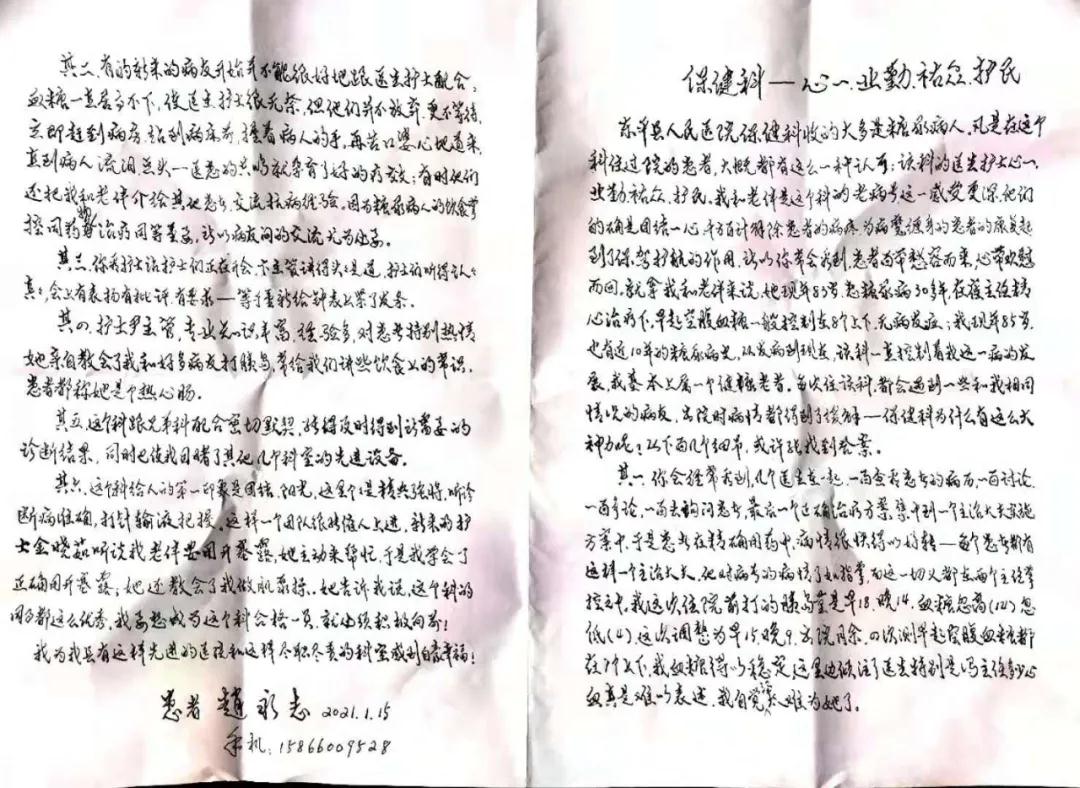 保健科——心一.业勤.祐众.护民
东平县人民医院保健科收的大多是糖尿病人，凡是在这个
科住过院的患者，大概都有这么一种认可：该科的医生护士心一、
业勤、祐众、护民。我和老伴是这个科的老病号这一感受更深，他们
的确是团结一心千方百计解除患者的病疼，为病魔缠身的患者的康复起
到了保驾护航的作用，所以你常会看到，患者为带愁容而来，心带欢颜
而回。就拿我和老伴来说，她现年83岁，患糖尿病30多年，在侯主任精
心治疗下，早起空腹血糖一般控制在8个上下，无病发症；我现年85岁，
也有近10年的糖尿病史，从发病到现在，该科一直控制着我这一病的发
展，我基本上属一个健糖老者。每次住该科，都会遇到一些和我相同
情况的病友，出院时病情都得到了缓解——保健科为什么有这么大
神力呢？以下面几个细节，或许能找到答案。
其一.你会经常看到，几个医生在一起，一面查看患者的病历，一面讨论，
一面争论，一面去询问患者，最后一个正确治疗方案，集中到一个主治大夫实施
方案中，于是患者在精确用药中，病情很快得以好转——每个患者都有
这样一个主治大夫，他对病号的病情了如指掌，而这一切又都在两个主任掌
控之中，我这次住院前打的胰岛量是早18.晚14.血糖忽高(12)忽
低(4)，这次调整为早15晚9.出院月余，四次测早起空腹血糖都
在7个上下，我血糖得以稳定，这里边倾注了医生特别是冯主任多少心
血真是难以表述，我自觉太难为她了。
其二、有的新来的病友开始并不能很好地跟医生护士配合，
血糖一直居高不下，使医生护士很无奈，但他们并不放弃，更不等待，
立即赶到病房，站到病床前，握着病人的手，再苦口婆心地道来，
直到病人流泪点头——医患的共鸣就孕育了好的疗效；有时他们
还把我和老伴介绍给其他患者，交流抗病经验，因为糖尿病人的饮食掌
控同药物治疗同等重要，所以病友间的交流尤为必要。
其三、你看护士该护士们正在开会，卞主管讲得头头是道，护士们听得认认
真真，会上有表扬有批评，有要求——等于重新给钟表上紧了发条。
其四.护士尹主管，专业知识丰富，经验多，对患者特别热情
她亲自教会了我和好多病友打胰岛，常给我们讲些饮食上的常识，
患者都称她是个热心肠。
其五.这个科跟兄弟科配合密切默契，转得及时得到所需要的
诊断结果，同时也使我目睹了其他几个科室的先进设备。
其六.这个科给人的第一印象是团结、阳光，这里个个是精兵强将，听诊
断病准确，打针输液把握，这样一个团队很能催人上进，新来的护
士金晓茹听说我老伴要用开塞露，她主动来帮忙，于是我学会了
正确用开塞露；她还教会了我做肌柔操..她告诉我说，这个科的
同事都这么优秀，我要想成为这个科合格一员，就必须积极向前！
我为我县有这样先进的医院和这样尽职尽责的科室感到自豪幸福！
患者 赵永志 2021.1.15
手机：15866009528